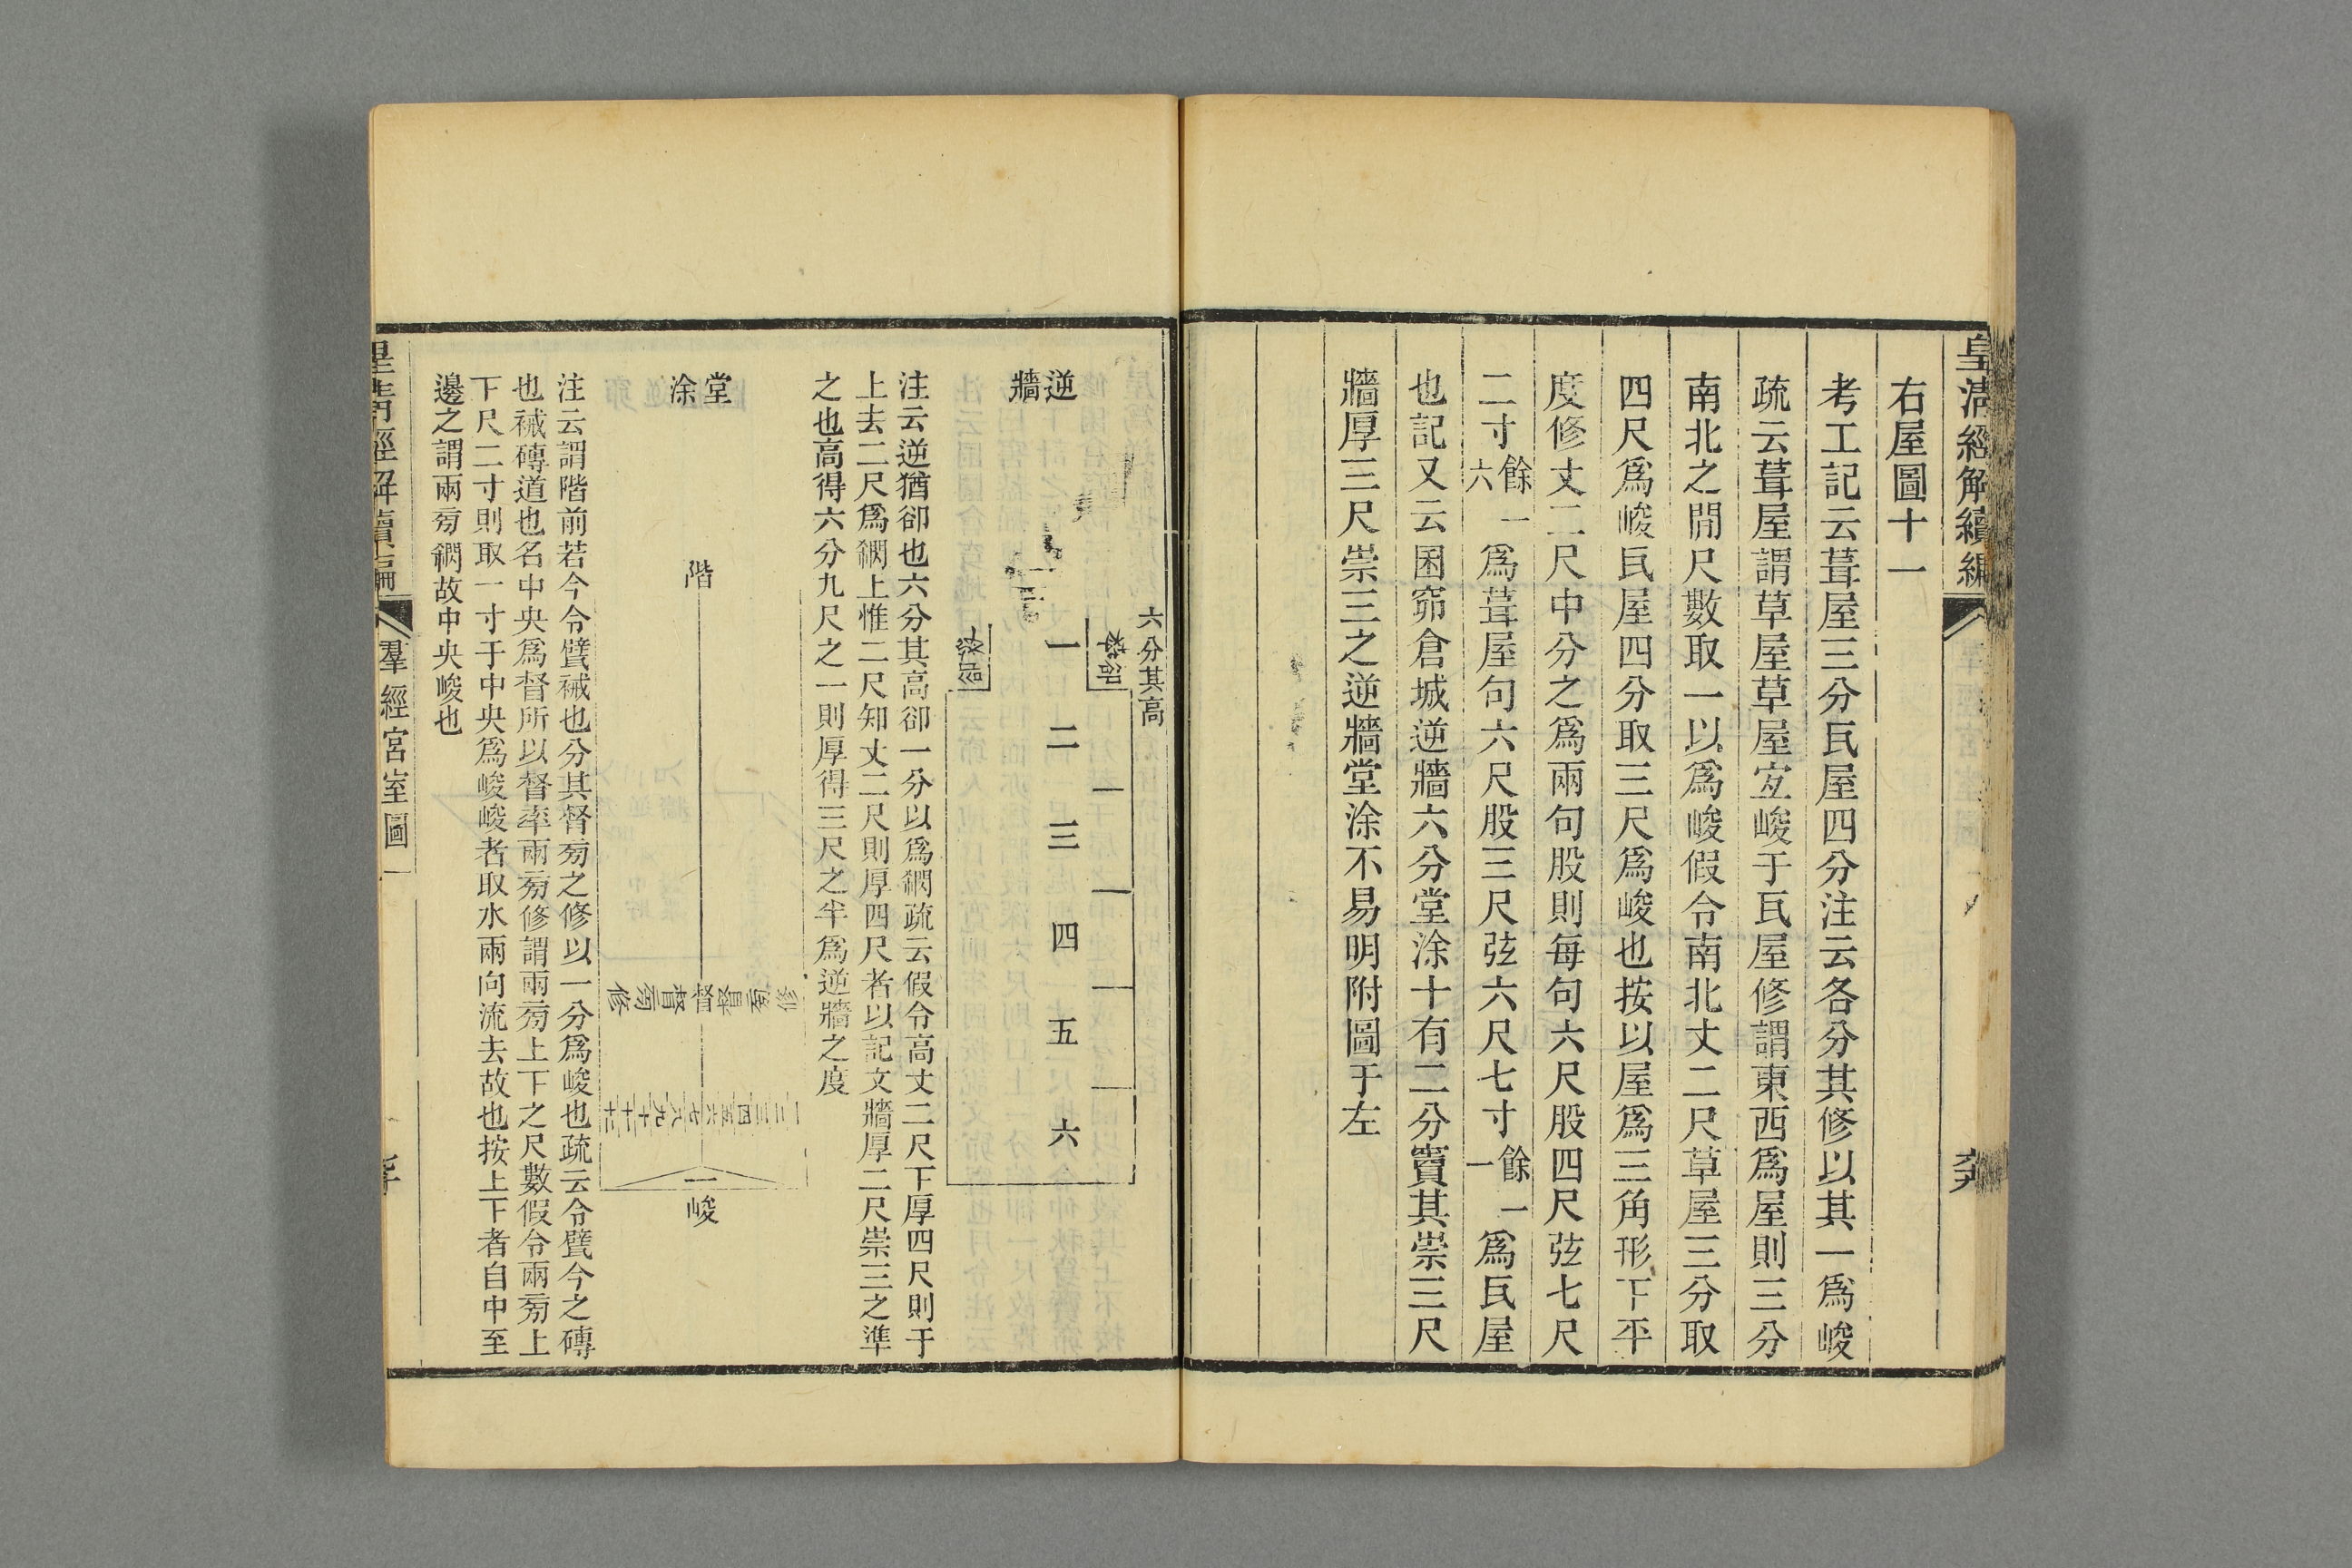 皇清經解續編
右屋圖十一
考工記云葺屋三分瓦屋四分注云各分其修以其一爲峻
疏云葺屋謂草屋草屋宐峻于瓦屋修謂東西爲屋則三分
南北之閒尺數取一以爲峻假令南北丈二尺草屋三分取
四尺爲峻瓦屋四分取三尺爲峻也按以屋爲三角形下平
度修丈二尺中分之爲兩句股則每句六尺股四尺弦七尺
二寸餘六一爲葺屋句六尺股三尺弦六尺七寸餘一一爲瓦屋
也記又云囷窌倉城逆牆六分堂涂十有二分竇其崇三尺
牆厚三尺崇三之逆牆堂涂不易明附圖于左
六分其高
逆牆
一 二 三 四 五 六
注云逆猶卻也六分其高卻一分以爲網疏云假令高丈二尺下厚四尺則于
上去二尺爲網上惟二尺知丈二尺則厚四尺者以記文牆厚三尺崇三之準
之也高得六分九尺之一則厚得三尺之半爲逆牆之度
堂涂
階
督旁修
一二三四五六七八九十十一十二
峻
注云謂階前若今令甓裓也分其督旁之修以一分爲峻也疏云令甓今之磚
也裓磚道也名中央爲督所以督率兩旁修謂兩旁上下之尺數假令兩旁上
下尺二寸則取一寸于中央爲峻峻者取水兩向流去故也按上下者自中至
邊之謂兩旁網故中央峻也
皇清經解續編
羣經宮室圖一